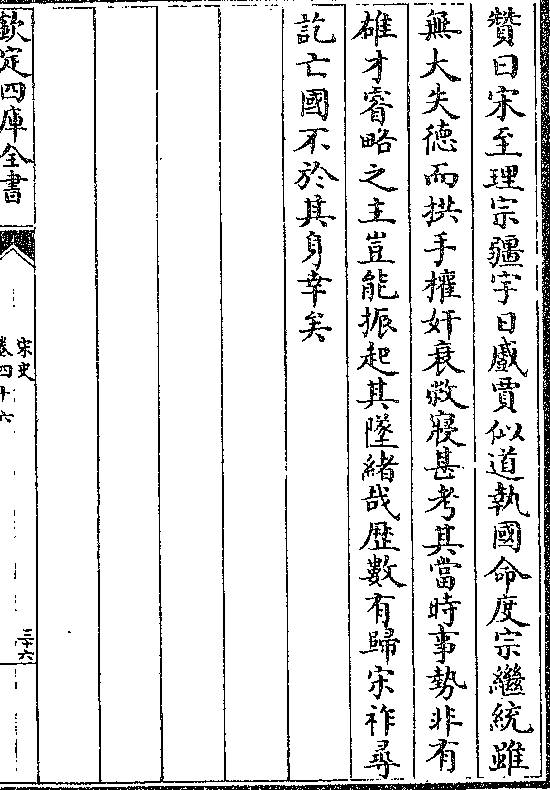 贊曰宋至理宗疆宇日蹙賈似道執國命度宗繼統雖
無大失德而拱手權奸衰敝寢甚考其當時事勢非有
雄才睿略之主豈能振起其墜緒哉歴數有歸宋祚尋
訖亡國不於其身幸矣
欽定四庫全書
宋史
卷四十六
三十六